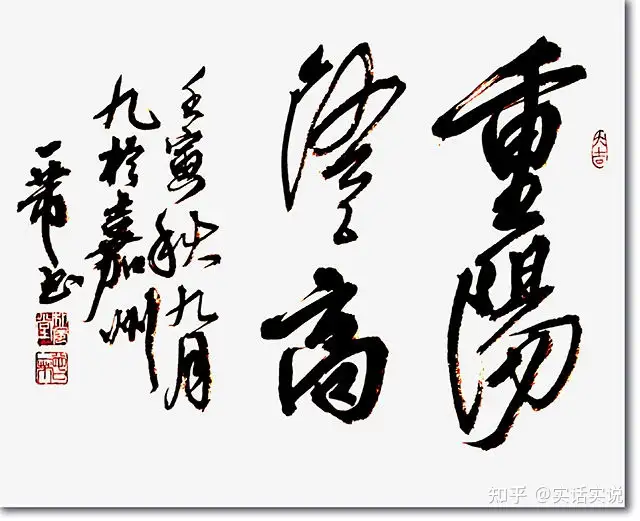 重陽
登高
壬寅秋九月
九於嘉州
一芾书
大吉
知乎 @实话实说